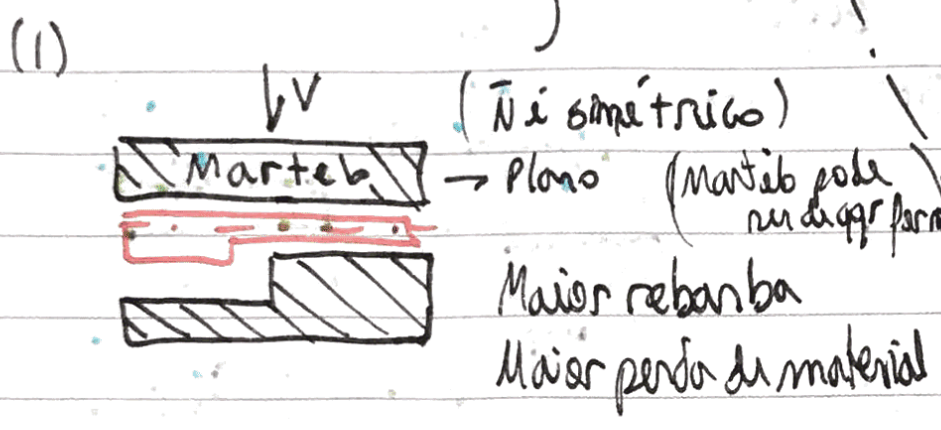 (1)
V
(Ñ é simétrico)
Martelo → Plano (Martelo pode
ser de qqr form
Maior rebarba
Maior perda de material